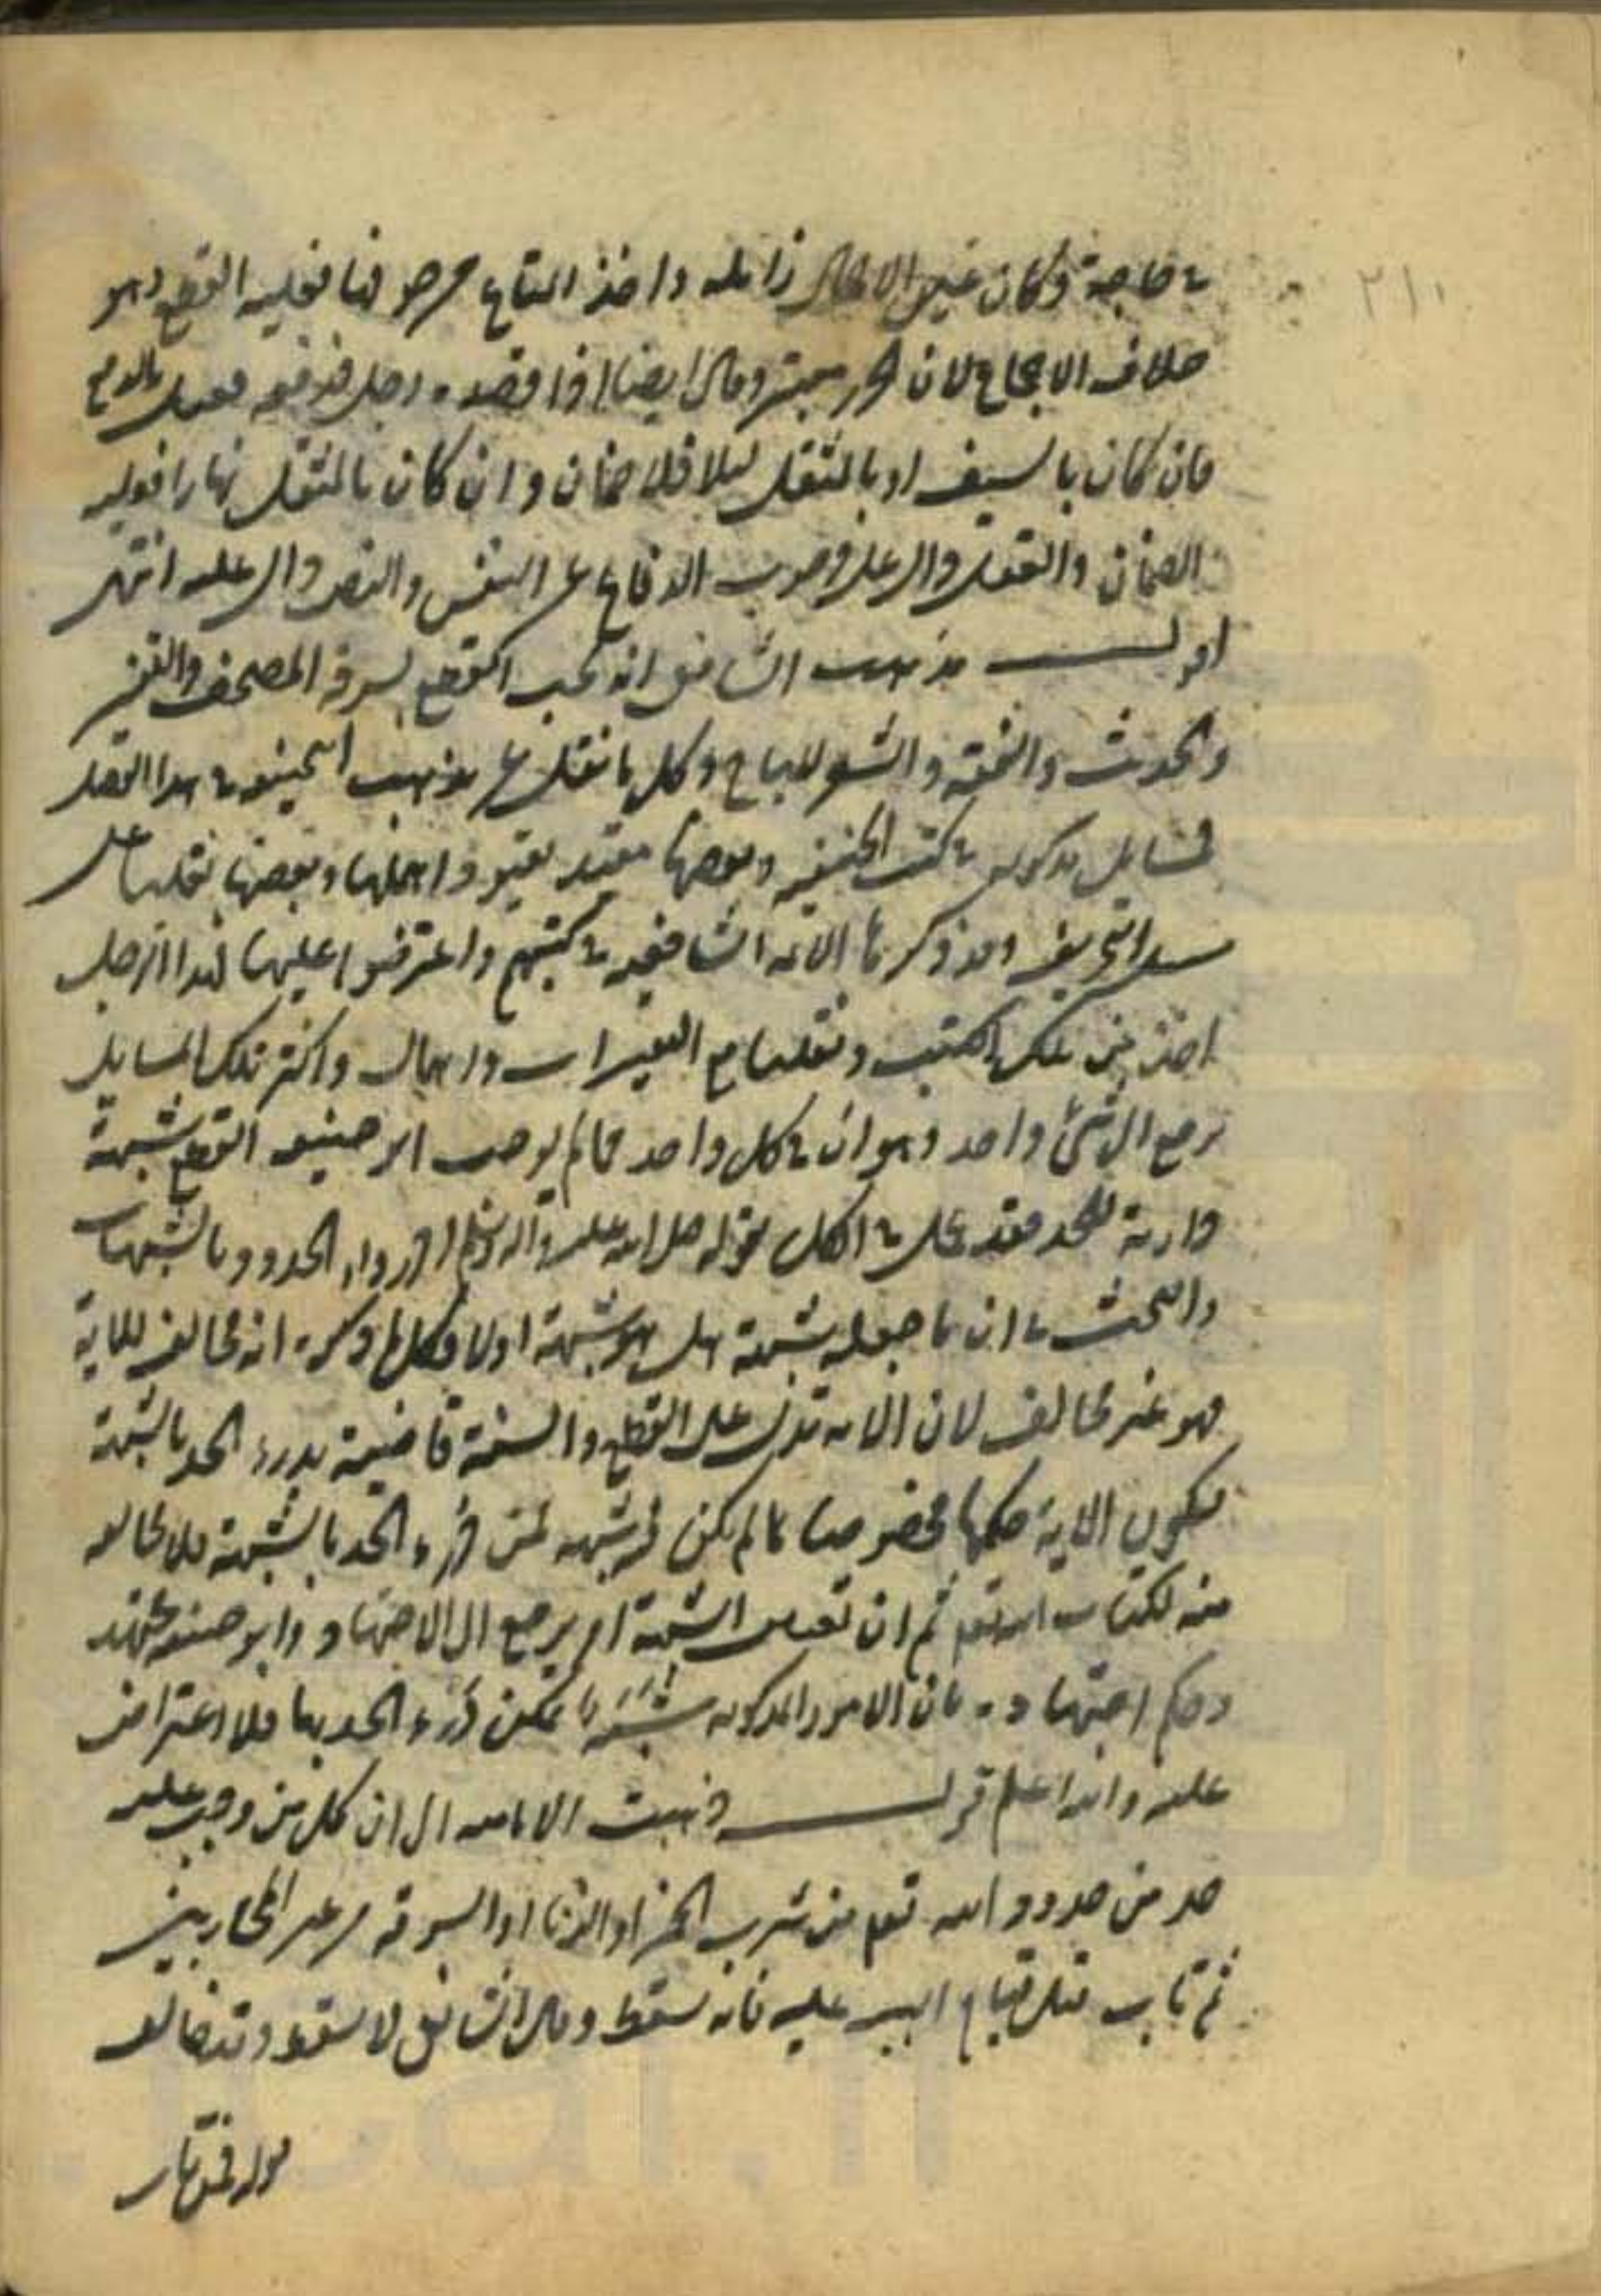 في حاجة وكان غير زامله واخذ المتاع من جوفها فعليه القطع وهو
خلاف الاجماع لان الحرز معتبر وقال ايضا اذا قصده رجل فدفعه فقتل بالدفع
فان كان بالسيف او بالمثقل ليلا فلا ضمان وان كان بالمثقل نهارا فعليه
الضمان والعقل دال على وجوب الدفاع عن النفس والنص دال عليه انتهى
اقول مذهب الشافعي انه يجب القطع بسرقة المصحف والتفسير
والحديث والفقه والشعر المباح وكل ما نقل عن مذهب ابي حنيفة في هذا الفصل
فمسائل مذكورة في كتب الحنفية وبعضها مقيد بقيود واهملها وبعضها نقلها على
سبيل التحريف وقد ذكرها الائمة الشافعية في كتبهم واعترضوا عليها فهذا الرجل
اخذ من تلك الكتب ونقلها مع التغييرات واهمال واكثر تلك المسايل
يرجع الى شئ واحد وهو ان في كل واحد مما لم يوجب ابو حنيفة القطع شبهة
دارية للحد فقد عمل في الكل بقوله صلى الله عليه وآله وسلم ادرؤا الحدود بالشبهات
والبحث في ان ما جعله شبهة هل هو شبهة اولا فكل ما ذكره انه مخالف للاية
فهو غير مخالف لان الاية تدل على القطع والسنة قاضية بدرء الحد بالشبهة
فيكون الاية حكمها مخصوصا بما لم يكن فيه شبهة فمن درء الحد بالشبهة فلا مخالفة
منه لكتاب الله تعالى ثم ان تعيين الشبهة امر يرجع الى الاجتهاد وابو حنيفة مجتهد
وحكم اجتهاده بان الامور المذكورة شبهة يمكن درء الحد بها فلا اعتراض
عليه والله اعلم قوله ذهبت الامامية الى ان كل من وجب عليه
حد من حدود الله تعالى من شرب الخمر او الزنا او السرقة من غير المحاربين
ثم تاب قبل قيام البينة عليه فانه يسقط وقال الشافعي لا يسقط وقد خالف
قوله تعالى